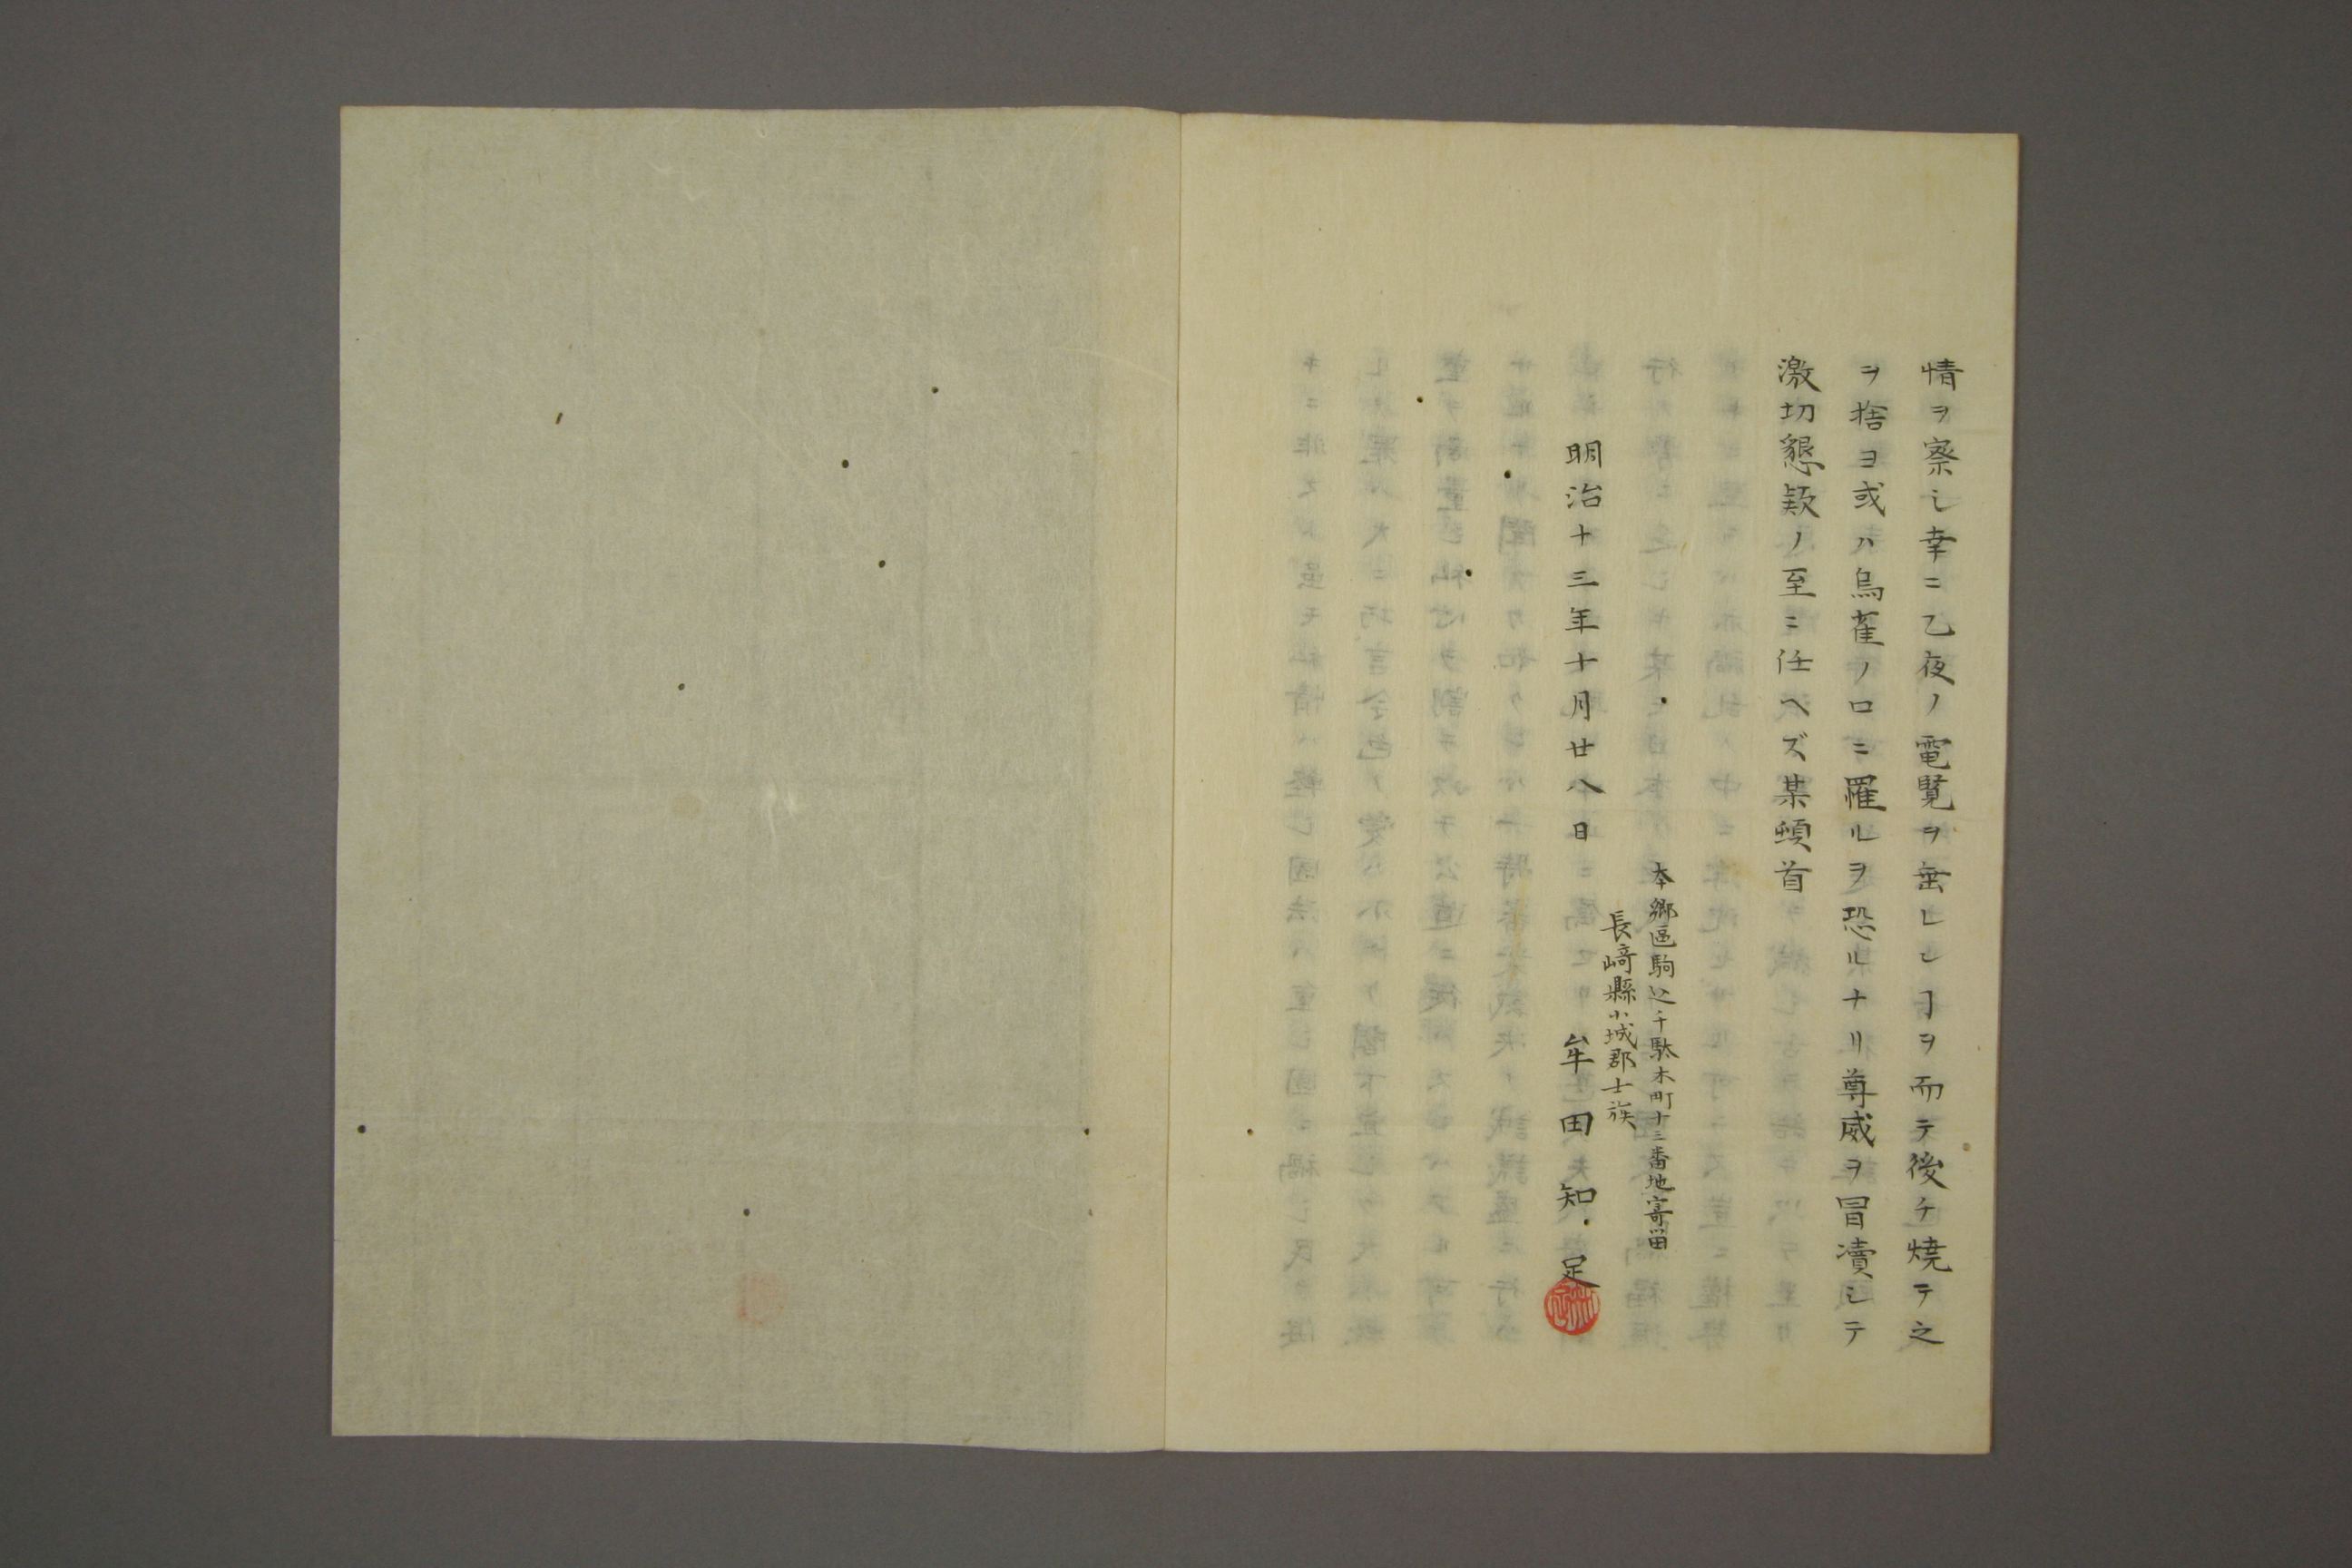 情ヲ察シ幸ニ乙夜ノ電覧ヲ垂レヒヿヲ而テ後チ焼テ之
ヲ捨ヨ或ハ烏雀ノ口ニ羅ルヲ恐ルナリ尊威ヲ冒瀆シテ
激切懇欵ノ至ニ任ヘズ某頓首
明治十三年十月廿八日
本郷區駒込千駄木町十三番地寄畄
長﨑縣小城郡士族
牟田知足